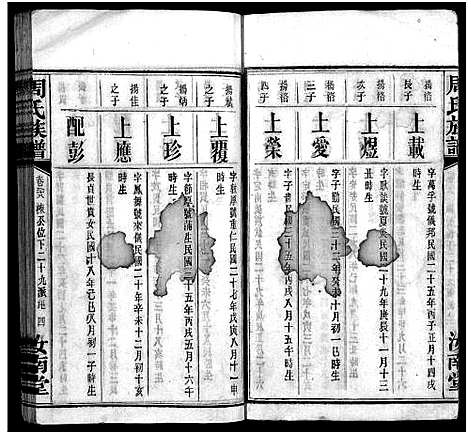 周氏族譜
汝南堂
揚榕
長子
上載
字萬孚號儀邦民國二十五年丙子正月十四戌
時生
揚榕
次子
上煜
字耿號夏民國二十九年庚辰十一月十三
丑時生
揚榕
三子
上愛
字子民國二十二年癸酉十月初一巳時生
揚榕
四子
上榮
字子民國三十五年丙戌八月十二
時生
揚
之子
上覆
字號重仁民國二十七年戊寅八月十一申
時生
揚炳
之子
上珍
字節號滿生民國三十五年丙戌五月十六午
時生
揚佳
之子
上應
字鳳舞號來儀民國二十年辛未十二月初十亥
時生
配彭
長貞世貴女民國十八年己巳八月初一子時生
周氏族譜
卷
位下二十九派
四
汝南堂